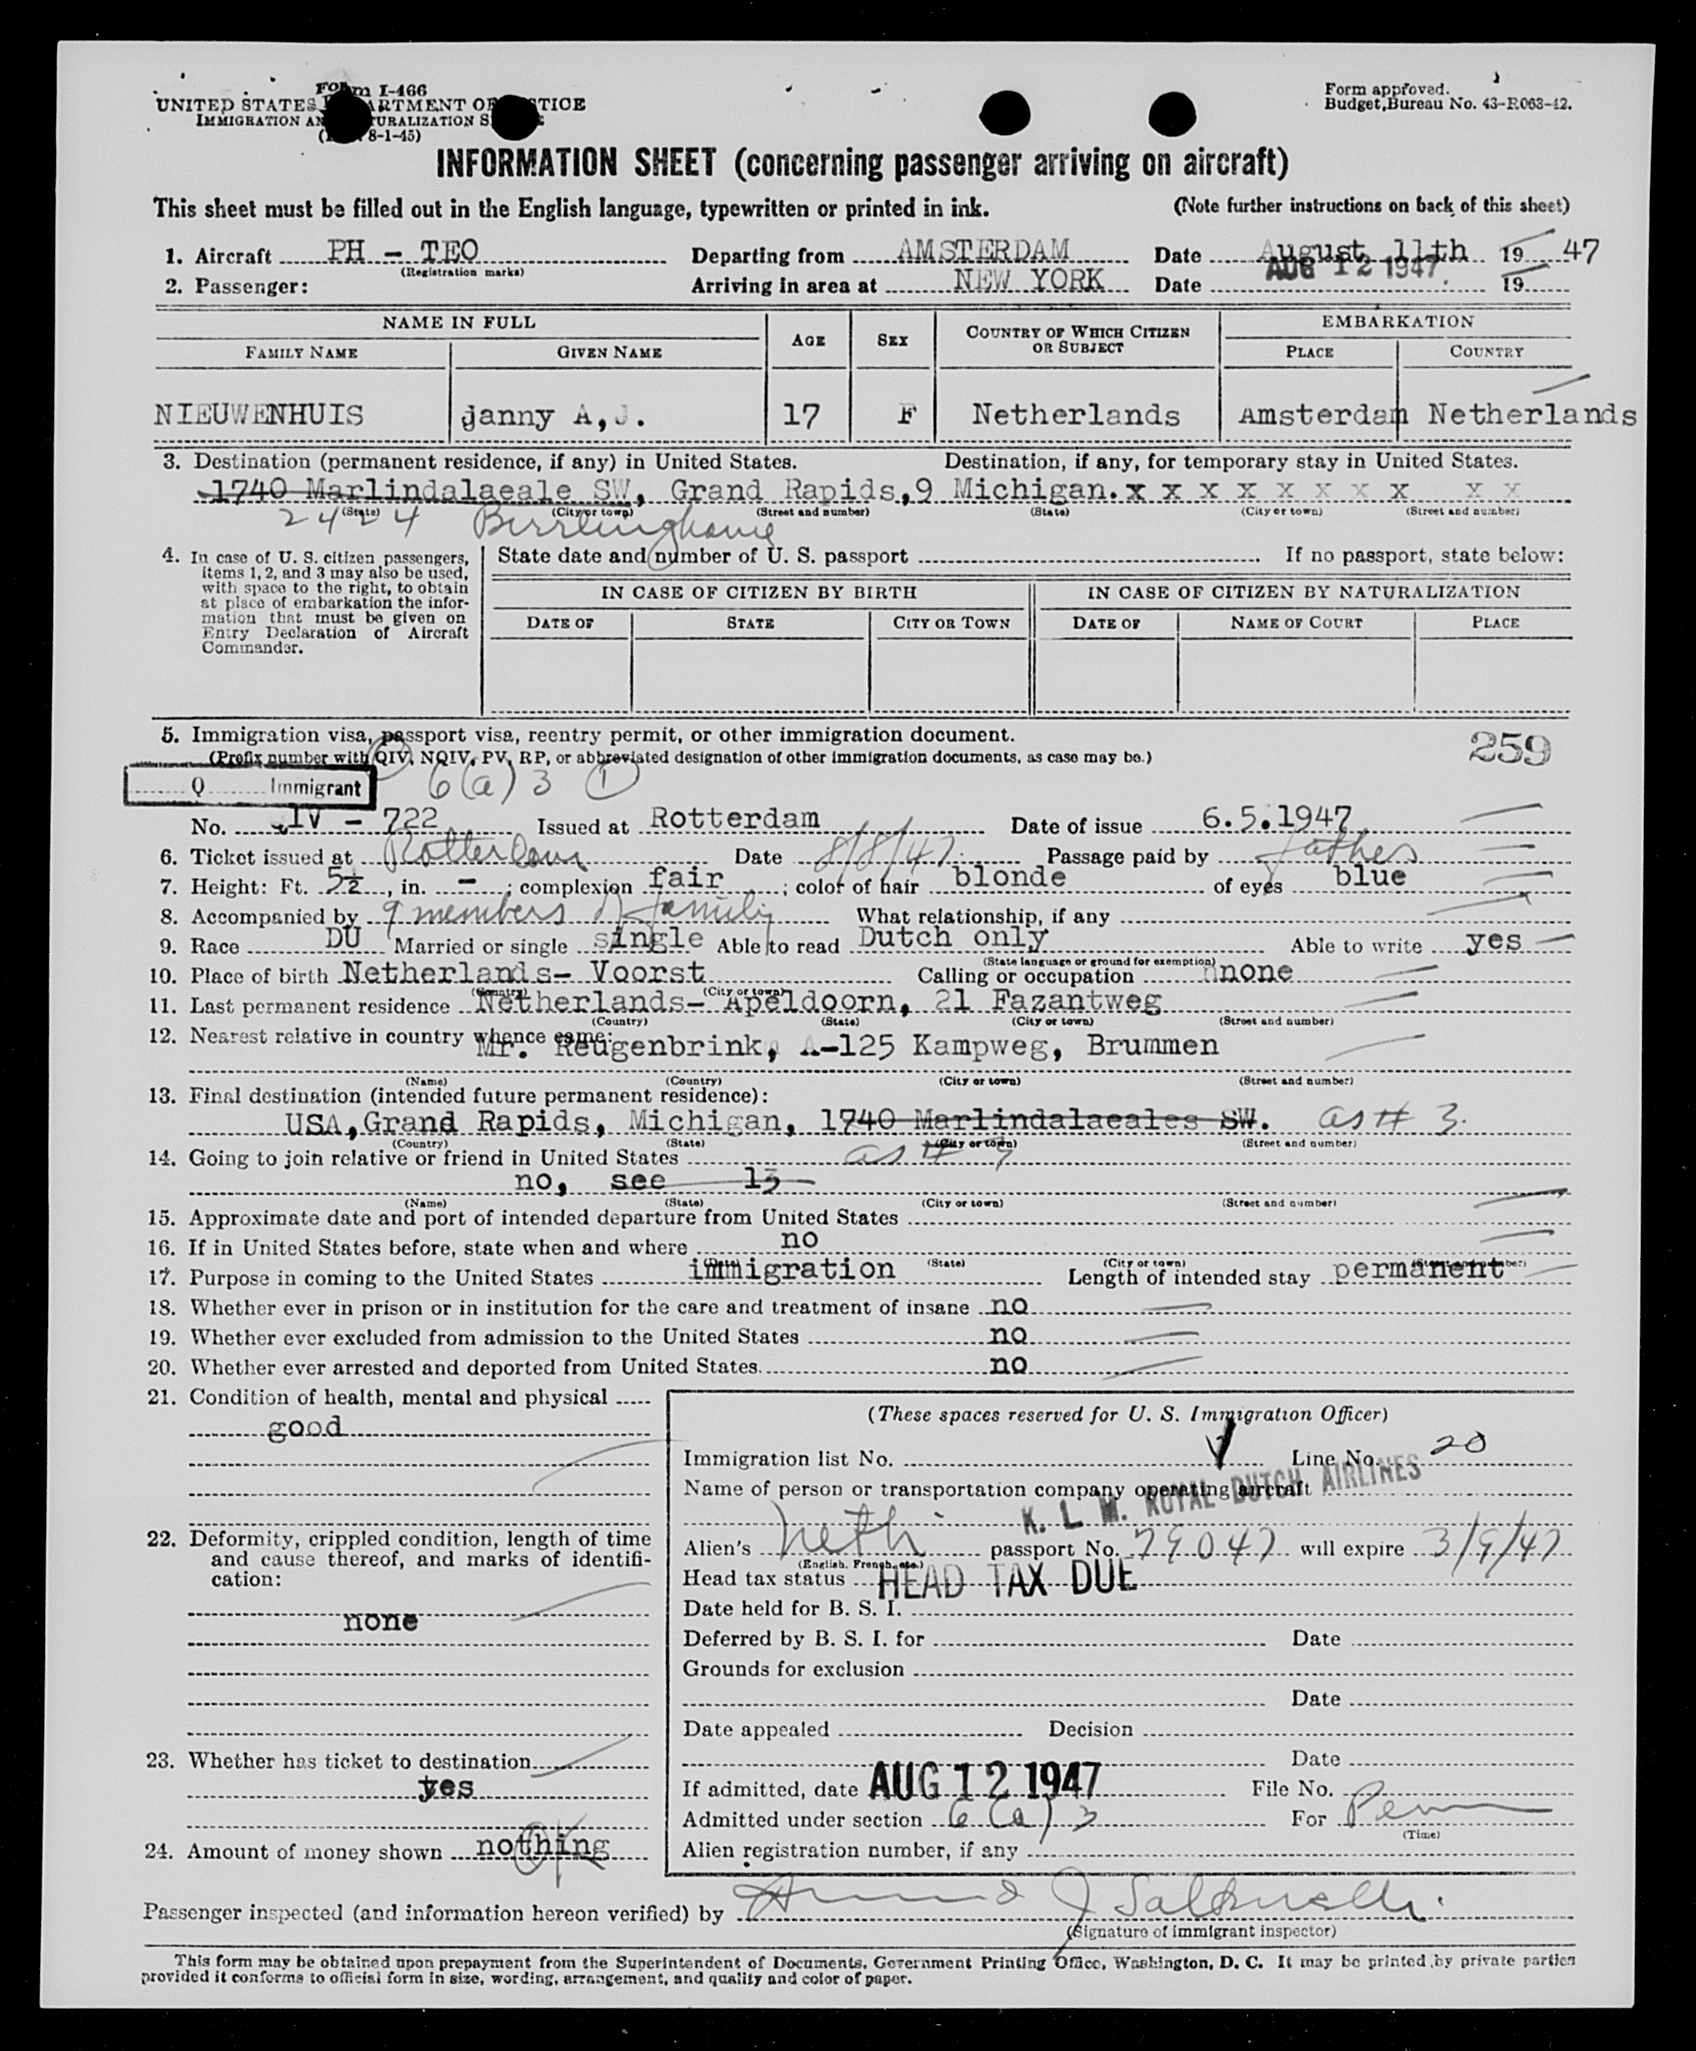 Form I-466
UNITED STATES DEPARTMENT OF JUSTICE
IMMIGRATION AND NATURALIZATION SERVICE
( 8-1-45)
Form approved.
Budget Bureau No. 43-R063-42.
INFORMATION SHEET (concerning passenger arriving on aircraft)
This sheet must be filled out in the English language, typewritten or printed in ink. (Note further instructions on back of this sheet)
1. Aircraft PH - TEO Departing from AMSTERDAM Date August 11th 19 47
(Registration marks)
2. Passenger: Arriving in area at NEW YORK Date AUG 12 1947 19
NAME IN FULL AGE SEX COUNTRY OF WHICH CITIZEN OR SUBJECT EMBARKATION
FAMILY NAME GIVEN NAME PLACE COUNTRY
NIEUWENHUIS janny A,J. 17 F Netherlands Amsterdam Netherlands
3. Destination (permanent residence, if any) in United States. Destination, if any, for temporary stay in United States.
1740 Marlindalaeale SW, Grand Rapids,9 Michigan. x x x x x x x x x x
(State) (City or town) (Street and number) (State) (City or town) (Street and number)
2424
4. In case of U. S. citizen passengers, items 1, 2, and 3 may also be used, with space to the right, to obtain at place of embarkation the information that must be given on Entry Declaration of Aircraft Commander.
State date and number of U. S. passport If no passport, state below:
IN CASE OF CITIZEN BY BIRTH IN CASE OF CITIZEN BY NATURALIZATION
DATE OF STATE CITY OR TOWN DATE OF NAME OF COURT PLACE
5. Immigration visa, passport visa, reentry permit, or other immigration document.
(Prefix number with QIV, NQIV, PV, RP, or abbreviated designation of other immigration documents, as case may be.)
259
Q Immigrant 6(a)3 1
No. QIV - 722 Issued at Rotterdam Date of issue 6.5.1947
6. Ticket issued at Rotterdam Date 8/8/47 Passage paid by father
7. Height: Ft. 5½, in. - ; complexion fair ; color of hair blonde of eyes blue
8. Accompanied by 9 members of family What relationship, if any
9. Race DU Married or single single Able to read Dutch only Able to write yes
(State language or ground for exemption)
10. Place of birth Netherlands- Voorst Calling or occupation none
(Country) (City or town)
11. Last permanent residence Netherlands- Apeldoorn, 21 Fazantweg
(Country) (State) (City or town) (Street and number)
12. Nearest relative in country whence came:
Mr. Reugenbrink, A-125 Kampweg, Brummen
(Name) (Country) (City or town) (Street and number)
13. Final destination (intended future permanent residence):
USA,Grand Rapids, Michigan, 1740 Marlindalaeales SW. as # 3.
(Country) (State) (City or town) (Street and number)
14. Going to join relative or friend in United States as #
no, see 13
(Name) (State) (City or town) (Street and number)
15. Approximate date and port of intended departure from United States
16. If in United States before, state when and where no
(Date) (State) (City or town) (Street and number)
17. Purpose in coming to the United States immigration Length of intended stay permanent
18. Whether ever in prison or in institution for the care and treatment of insane no
19. Whether ever excluded from admission to the United States no
20. Whether ever arrested and deported from United States. no
21. Condition of health, mental and physical
good
22. Deformity, crippled condition, length of time and cause thereof, and marks of identification:
none
23. Whether has ticket to destination
yes
24. Amount of money shown nothing
(These spaces reserved for U. S. Immigration Officer)
Immigration list No. Line No. 20
Name of person or transportation company operating aircraft
K. L. M. ROYAL DUTCH AIRLINES
Alien's Neth passport No. 79047 will expire 3/9/47
(English, French, etc.)
Head tax status HEAD TAX DUE
Date held for B. S. I.
Deferred by B. S. I. for Date
Grounds for exclusion
Date
Date appealed Decision
Date
If admitted, date AUG 12 1947 File No.
Admitted under section 6(a)3 For Perm
(Time)
Alien registration number, if any
Passenger inspected (and information hereon verified) by
(Signature of immigrant inspector)
This form may be obtained upon prepayment from the Superintendent of Documents, Government Printing Office, Washington, D. C. It may be printed by private parties
provided it conforms to official form in size, wording, arrangement, and quality and color of paper.